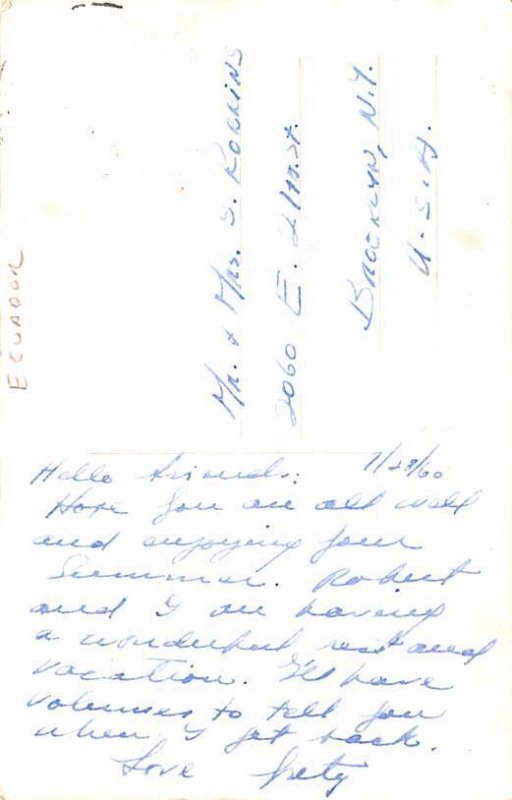 ECUADOR
Mr. & Mrs. S. ROBBINS
2060 E. 21st.
BROOKLYN, N.Y.
U.S.A.
7/28/60
Hello friends:
Hope you are all well
and enjoying your
Summer. Robert
and I are having
a wonderful rest and
vacation. I'll have
volumes to tell you
when I get back.
Love